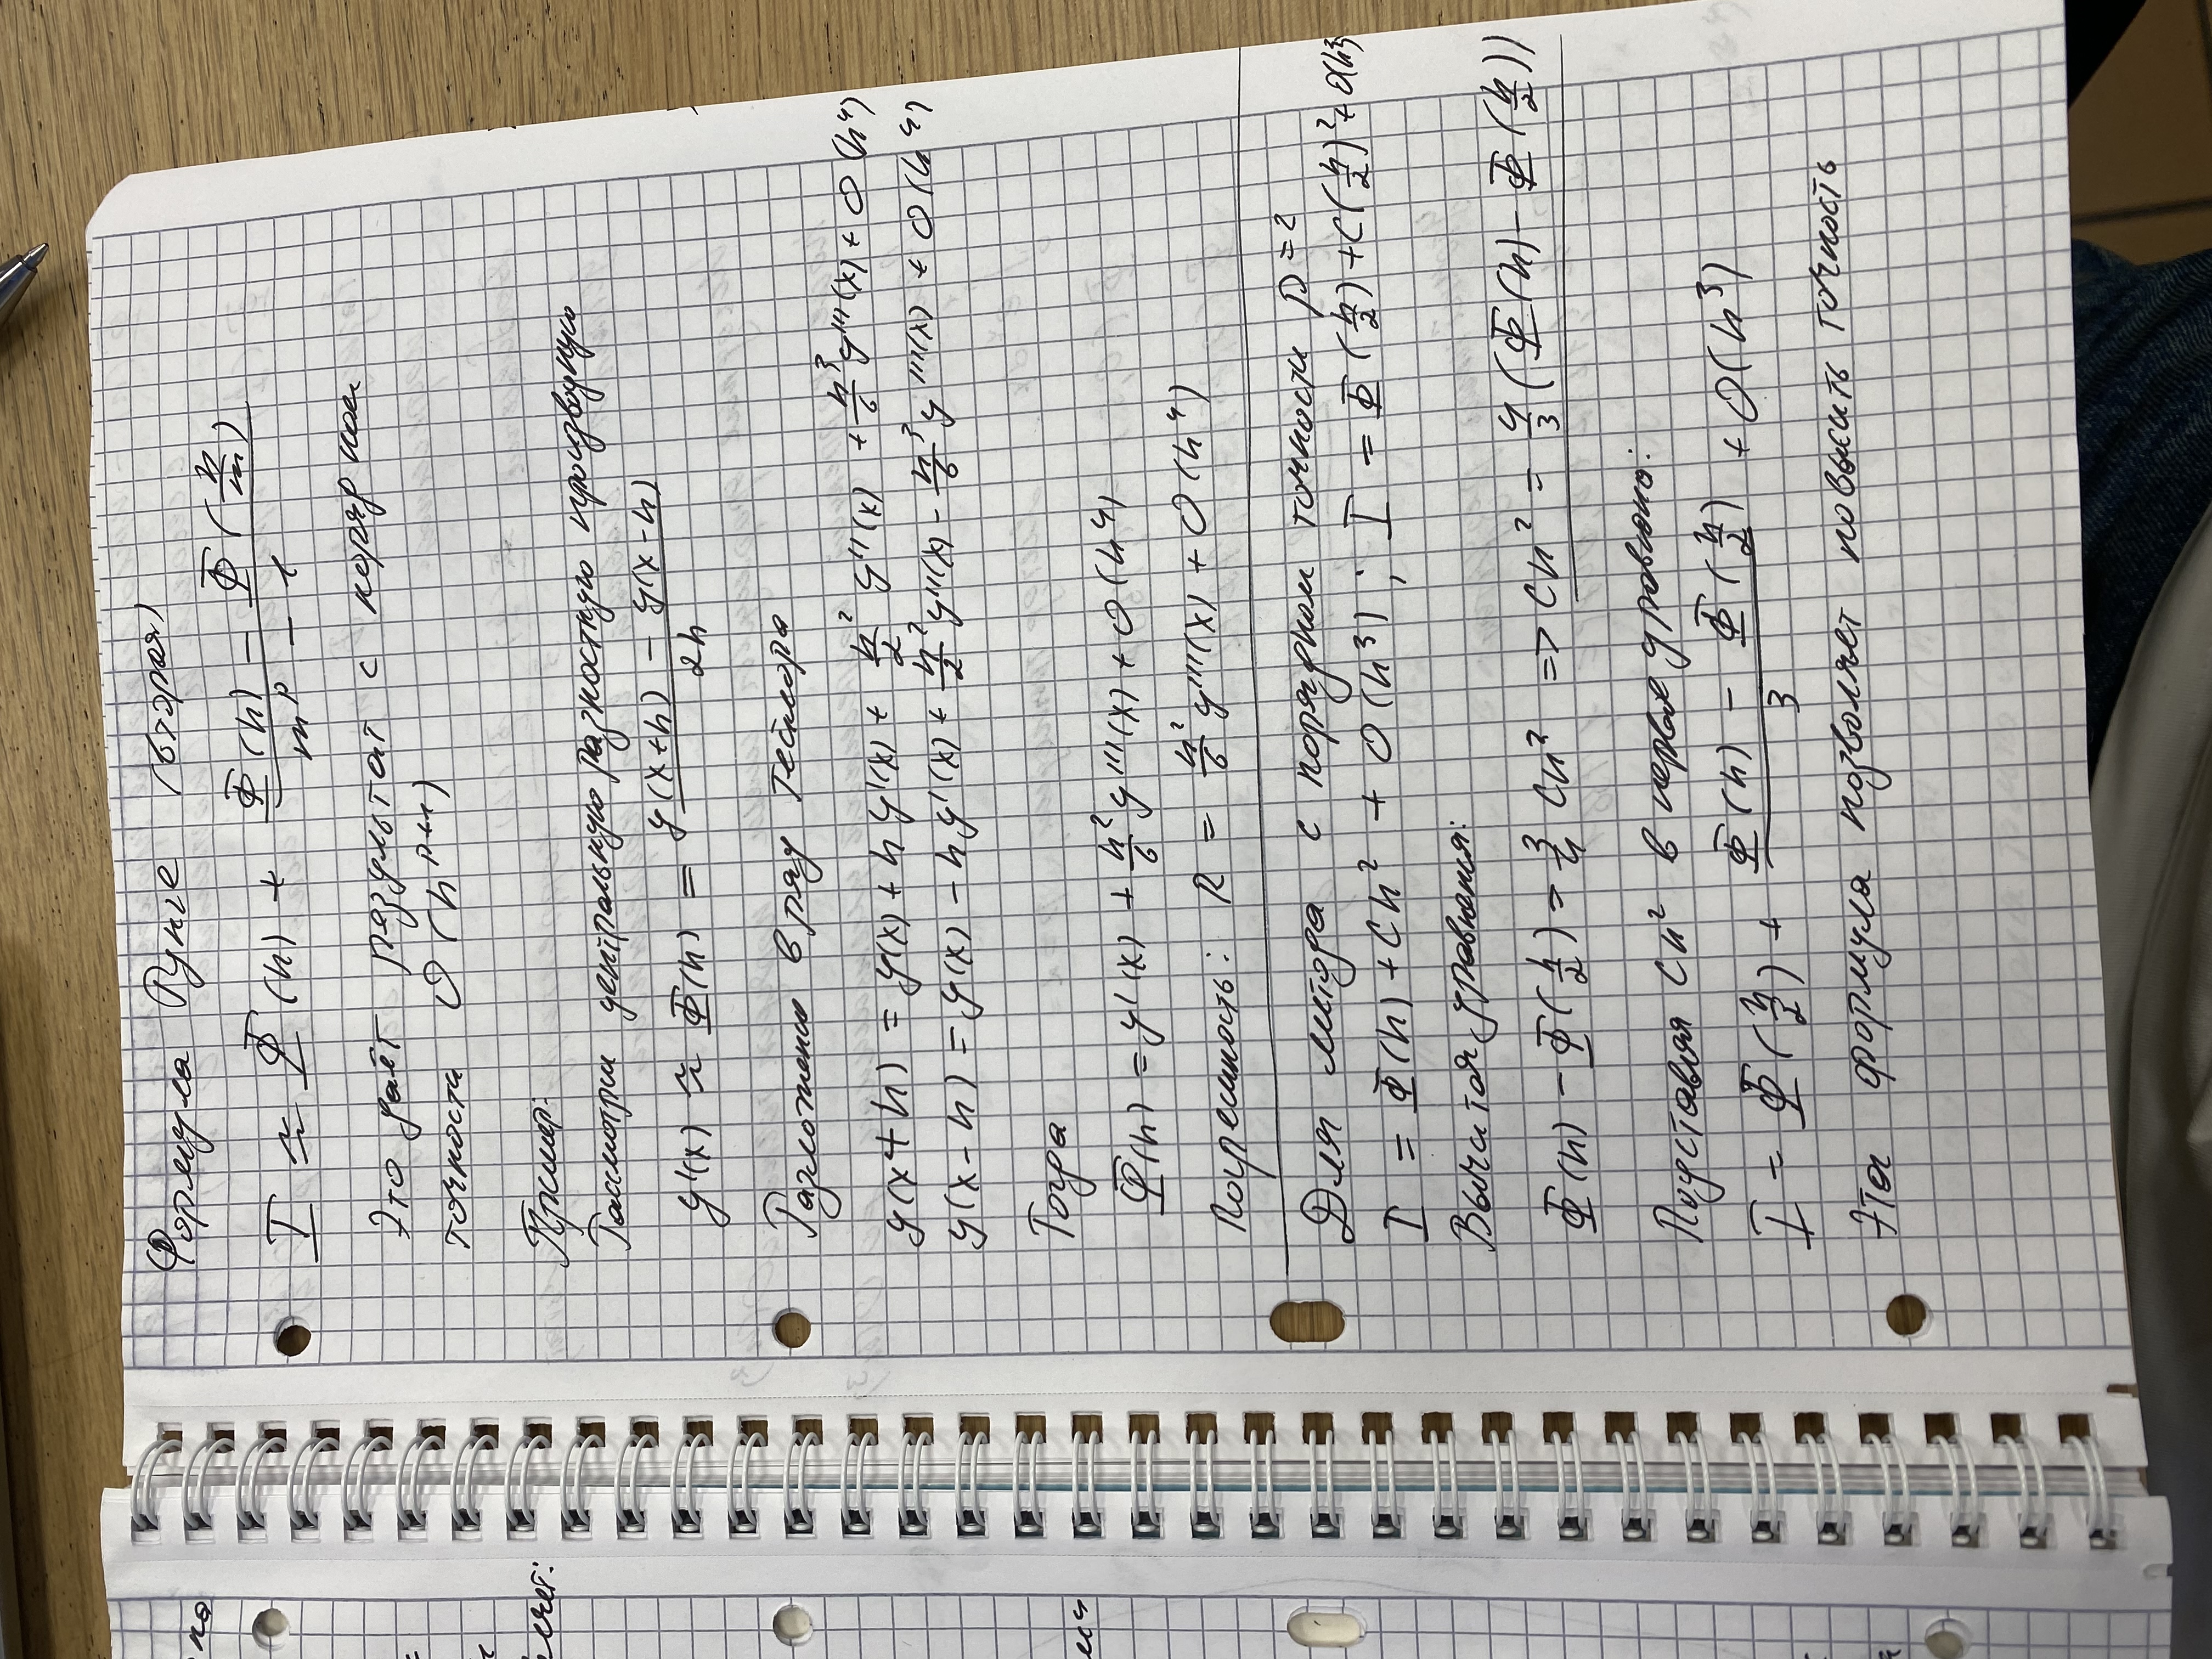 Формула Рунге (вторая)
I ≈ Φ(h) + (Φ(h) − Φ(h/m)) / (m^p − 1)
Это даёт результат с порядком
точности O(h^(p+1))
Пример:
Рассмотрим центральную разностную производную
y'(x) ≈ Φ(h) = (y(x+h) − y(x−h)) / 2h
Разложение в ряд Тейлора
y(x+h) = y(x) + h y'(x) + h²/2 y''(x) + h³/6 y'''(x) + O(h⁴)
y(x−h) = y(x) − h y'(x) + h²/2 y''(x) − h³/6 y'''(x) + O(h⁴)
Тогда
Φ(h) = y'(x) + h²/6 y'''(x) + O(h⁴)
Погрешность: R = h²/6 y'''(x) + O(h⁴)
Для метода с порядком точности p=2
I = Φ(h) + Ch² + O(h³) ; I = Φ(h/2) + C(h/2)² + O(h³)
Вычитая уравнения:
Φ(h) − Φ(h/2) = 3/4 Ch² => Ch² = 4/3 (Φ(h) − Φ(h/2))
Подставляя Ch² в первое уравнение:
I = Φ(h/2) + (Φ(h) − Φ(h/2)) / 3 + O(h³)
Эта формула позволяет повысить точность